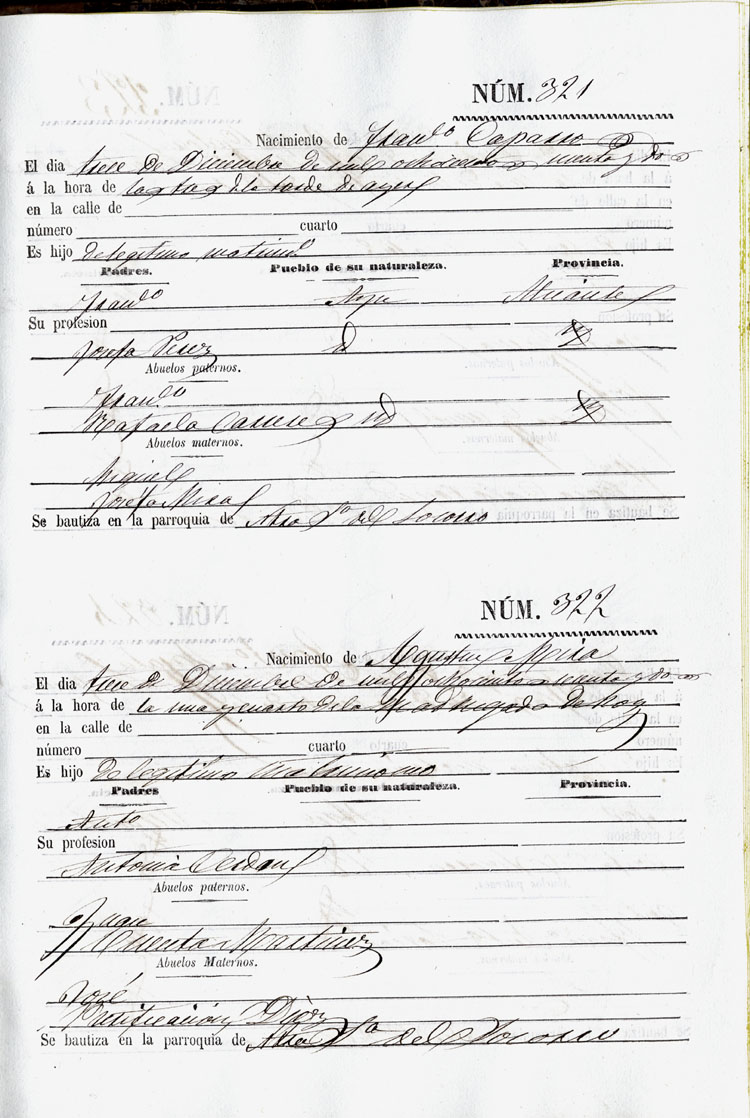 NÚM. 321
Nacimiento de Fran.co Capasso
El dia trece de Diciembre de mil ochocientos y dos
á la hora de las de la tarde de ayer
en la calle de
número cuarto
Es hijo de legítimo matrim.o
Padres. Pueblo de su naturaleza. Provincia.
Fran.co Aspe Alicante
Su profesion
Josefa Perez id id
Abuelos paternos.
Fran.co
Rafaela id id
Abuelos maternos.
Miguel
Josefa Mira
Se bautiza en la parroquia de Ntra Sra del Socorro
NÚM. 322
Nacimiento de Agustin Mira
El dia trece de Diciembre de mil ochocientos y dos
á la hora de la una y cuarto de la madrugada de hoy
en la calle de
número cuarto
Es hijo de legitimo matrimonio
Padres Pueblo de su naturaleza. Provincia.
Anto
Su profesion
Antonia Cerdan
Abuelos paternos.
Juan
Vicenta Martinez
Abuelos Maternos.
José
Purificacion Diez
Se bautiza en la parroquia de Ntra Sra del Socorro